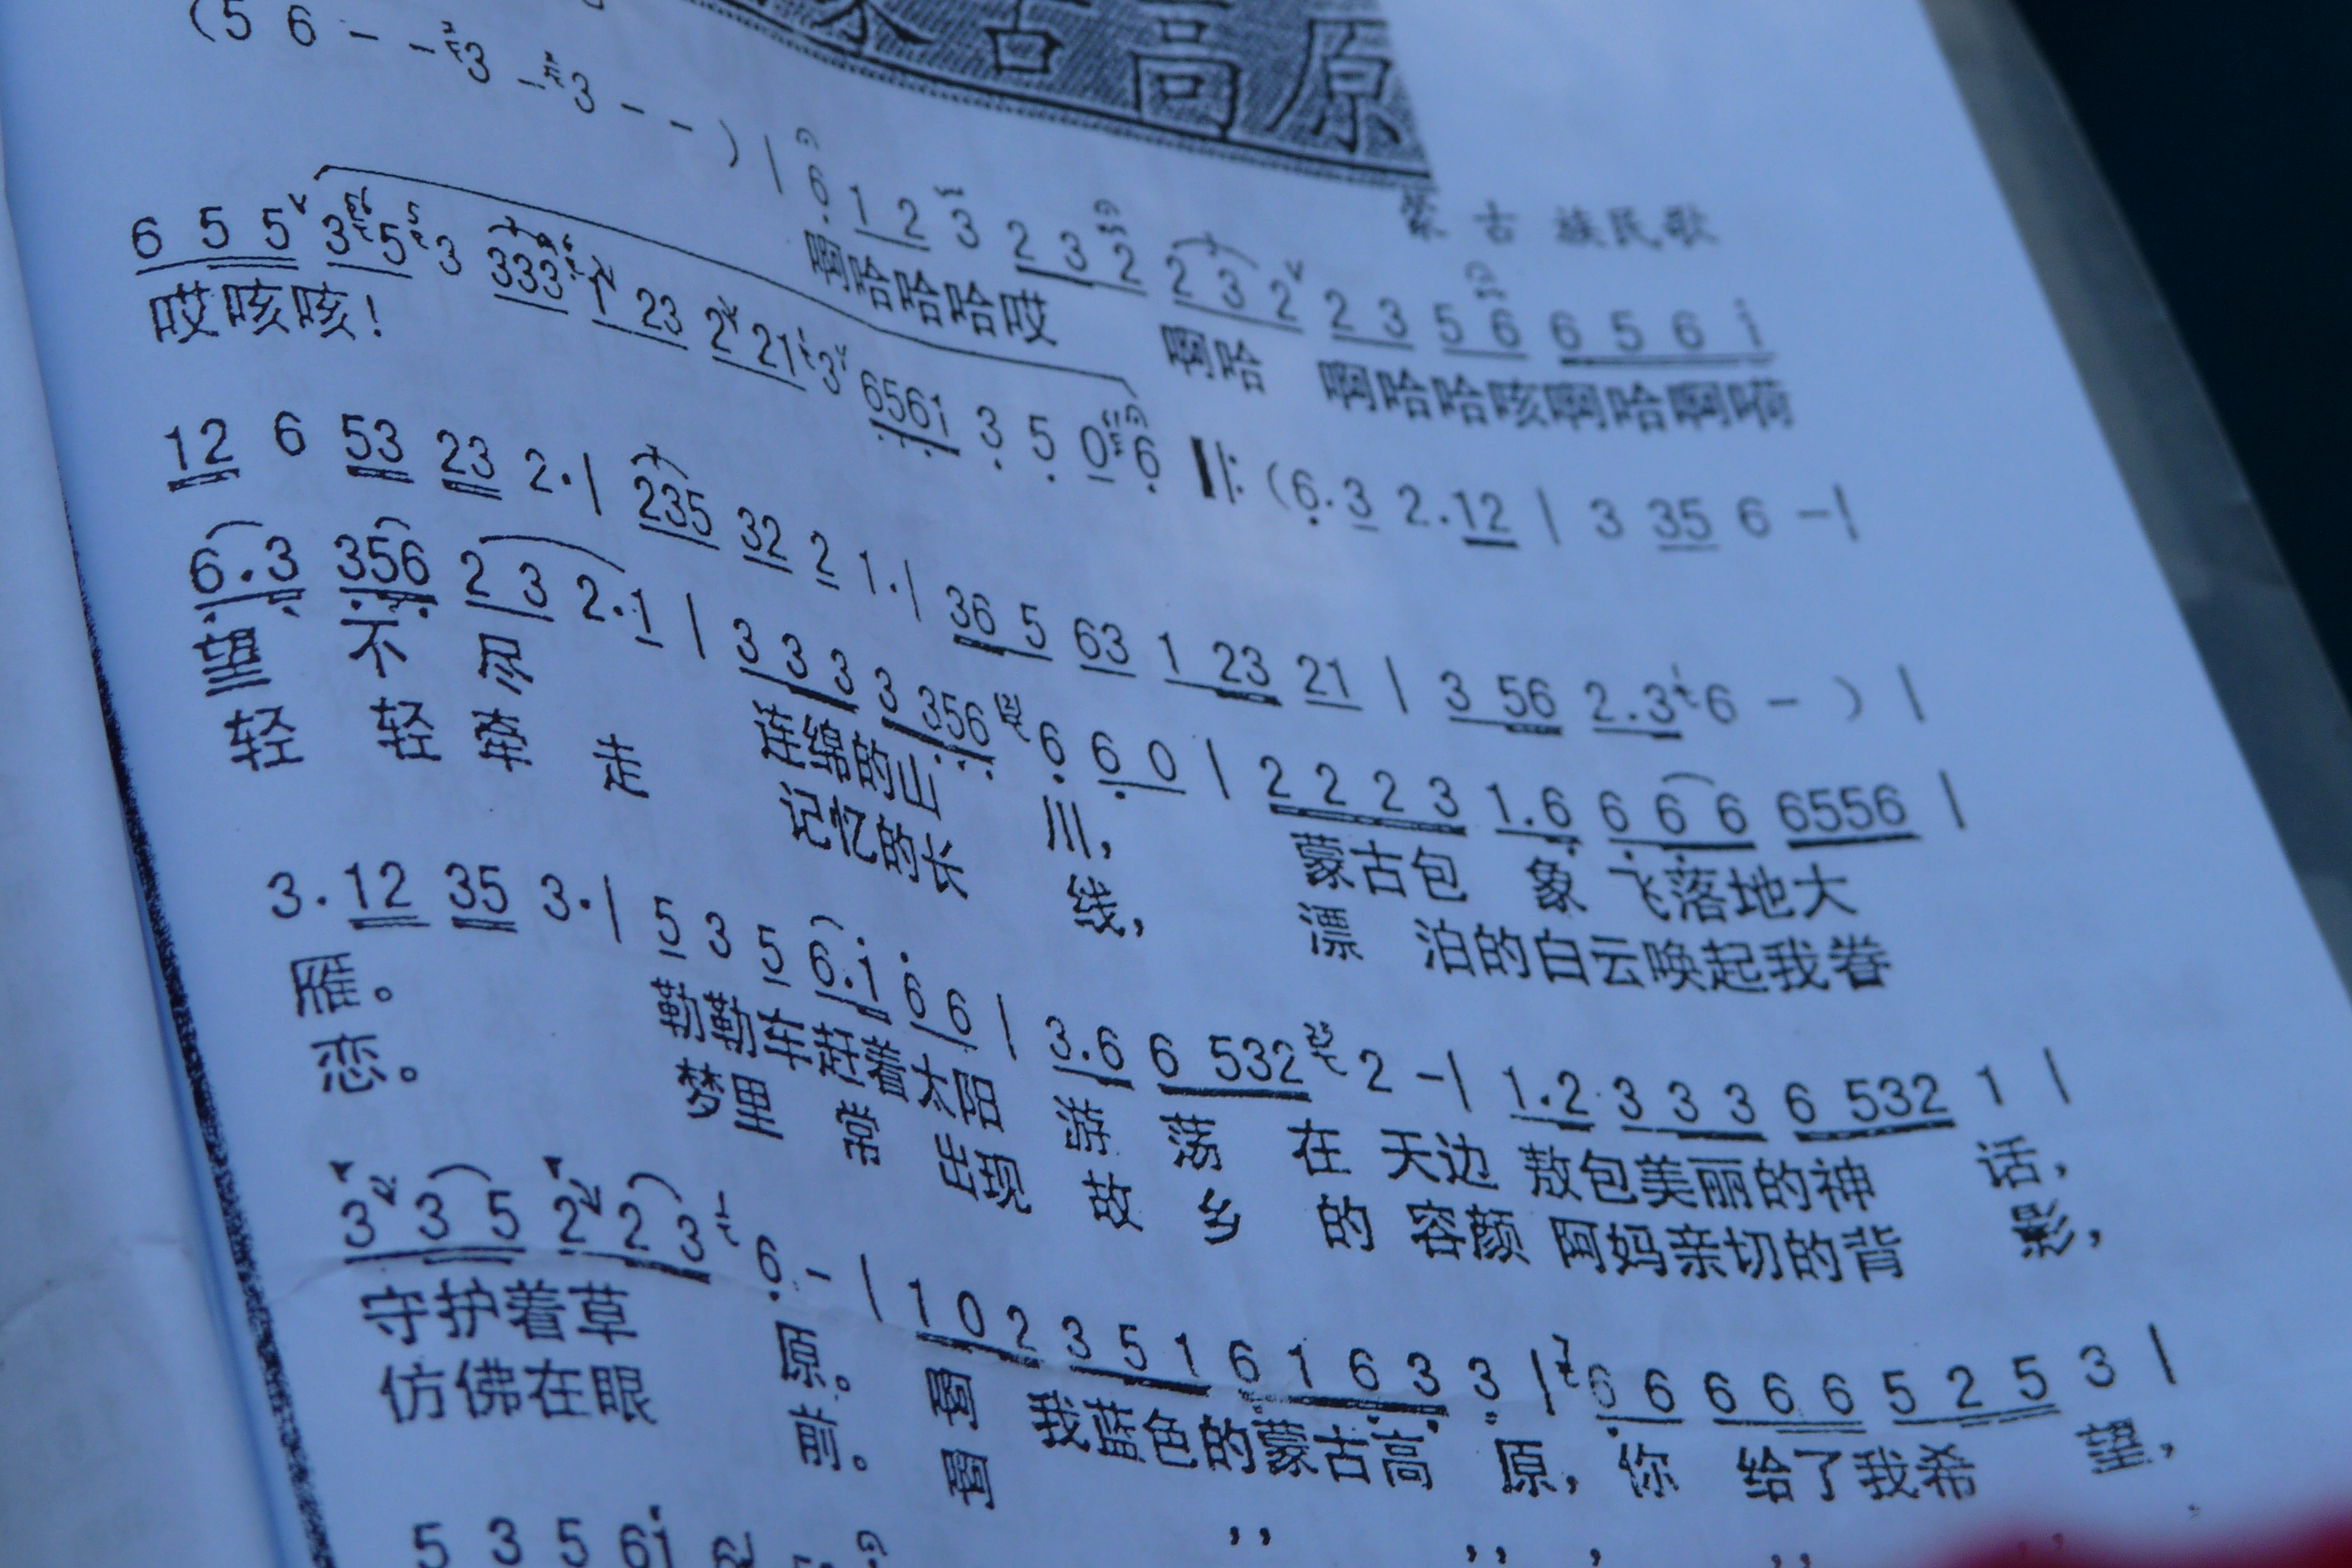 古高原
蒙古族民歌
(5 6 - - 3 - 3 - - ) | 6 12 3 2 3 2 2 3 2 2 3 5 6 6 5 6 i
啊哈哈哈哎 啊哈 啊哈哈咳啊哈啊嗬
6 5 5 3 5 3 333 1 23 2 21 3 6561 3 5 0 6 ‖: (6.3 2.12 | 3 35 6 -|
哎咳咳!
12 6 53 23 2.| 235 32 2 1.| 36 5 63 1 23 21 | 3 56 2.3 6 - ) |
6.3 356 2 3 2.1 | 3 3 3 3 356 6 6 0 | 2 2 2 3 1.6 6 6 6 6556 |
望 不 尽 连绵的山 川, 蒙古包 象 飞落地大
轻 轻 牵 走 记忆的长 线, 漂 泊的白云唤起我眷
3.12 35 3.| 5 3 5 6.i 6 6 | 3.6 6 532 2 -| 1.2 3 3 3 6 532 1 |
雁。 勒勒车赶着太阳 游 荡 在 天边 敖包美丽的神 话,
恋。 梦里 常 出现 故 乡 的 容颜 阿妈亲切的背 影,
3 3 5 2 2 3 6 - | 1 0 2 3 5 1 6 1 6 3 3 | 6 6 6 6 6 5 2 5 3 |
守护着草 原。 啊 我蓝色的蒙古高 原, 你 给了我希 望,
仿佛在眼 前。 啊 ,, ,, , ,,
5 3 5 6i